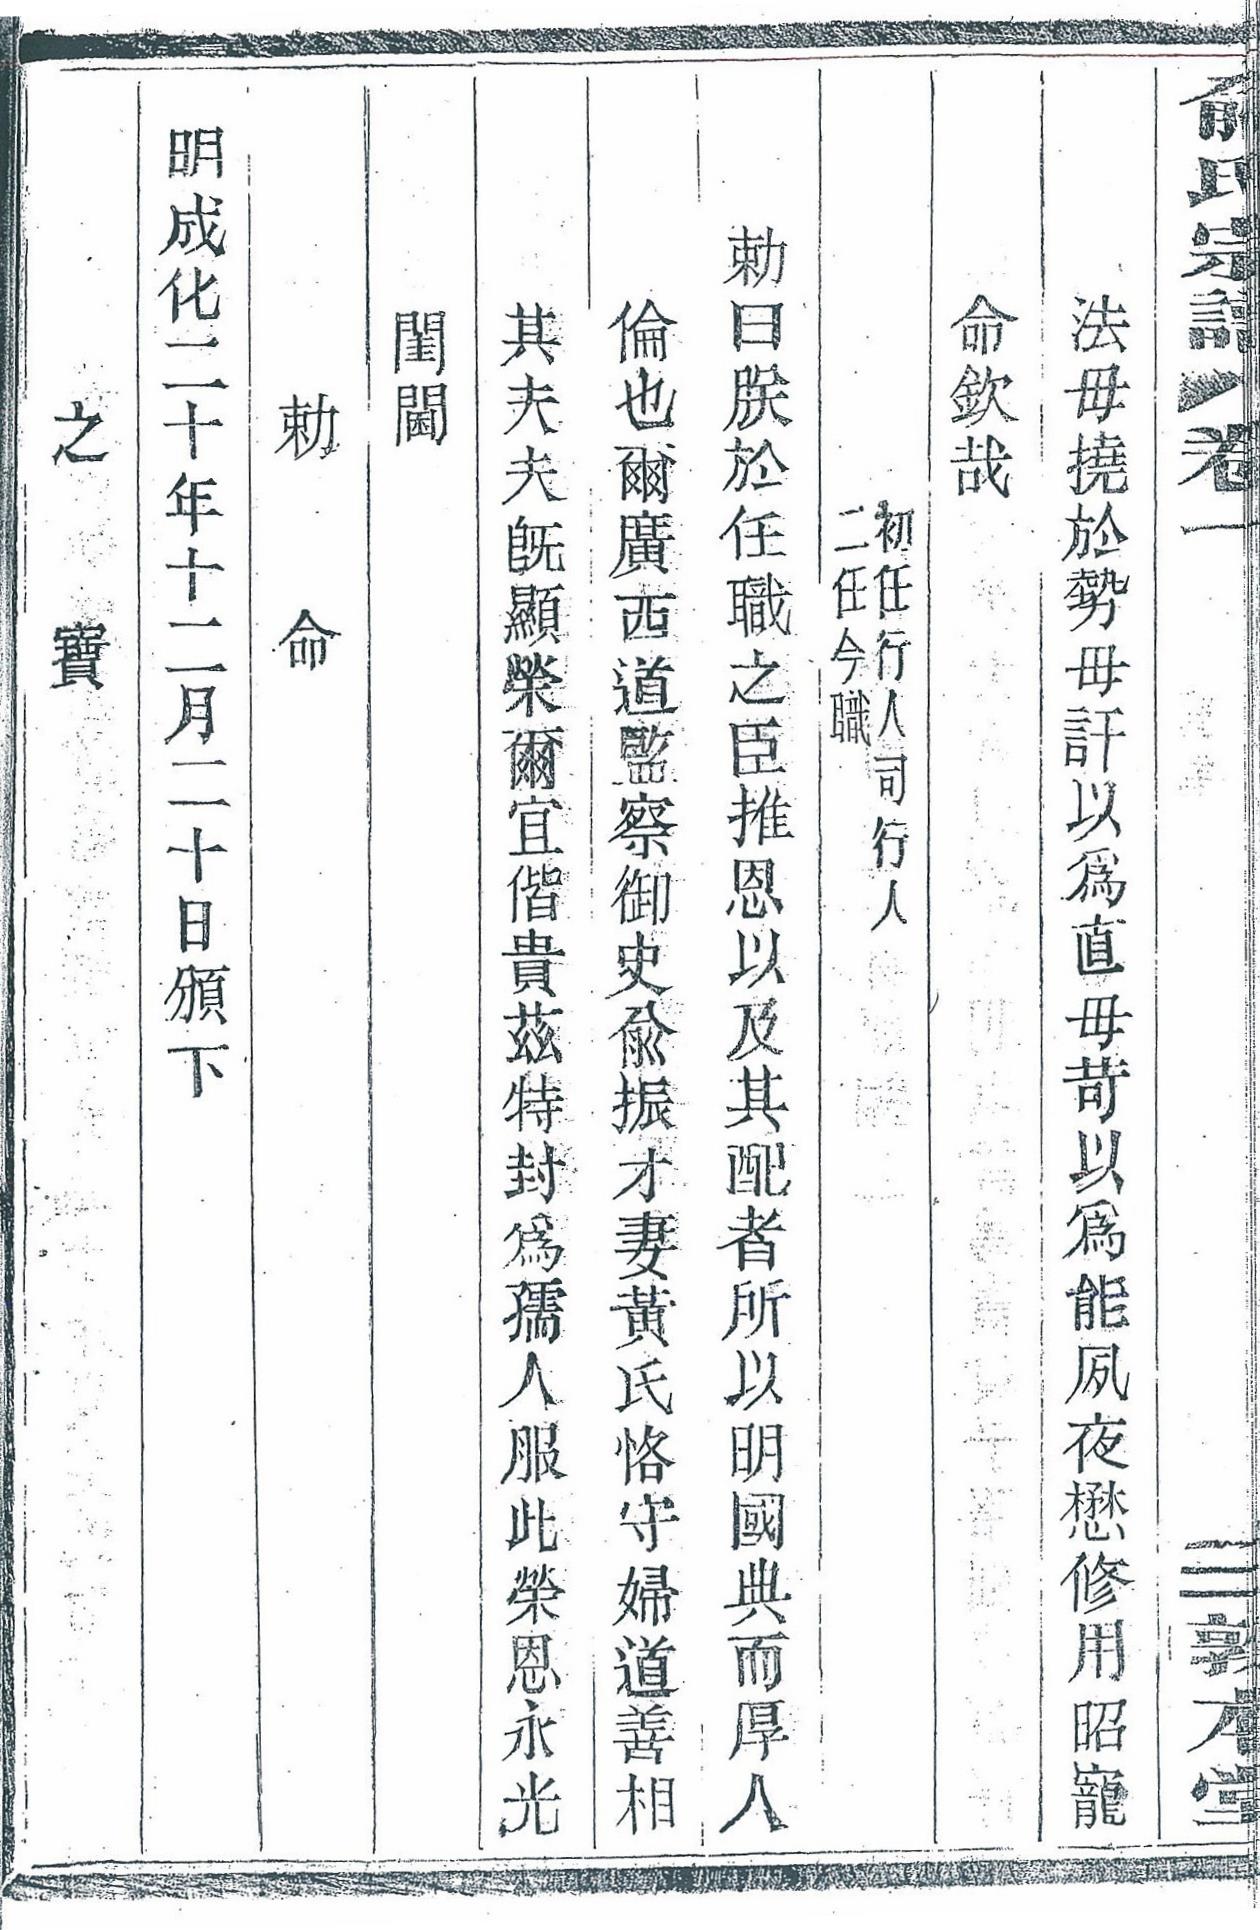 俞氏宗譜 卷一 三 敦本堂
法毋撓於勢毋訐以爲直毋苛以爲能夙夜懋修用昭寵
命欽哉
初任行人司行人
二任今職
勅曰朕於任職之臣推恩以及其配者所以明國典而厚人
倫也爾廣西道監察御史俞振才妻黃氏恪守婦道善相
其夫夫旣顯榮爾宜偕貴茲特封爲孺人服此榮恩永光
閨閫
勅命
明成化二十年十二月二十日頒下
之寶